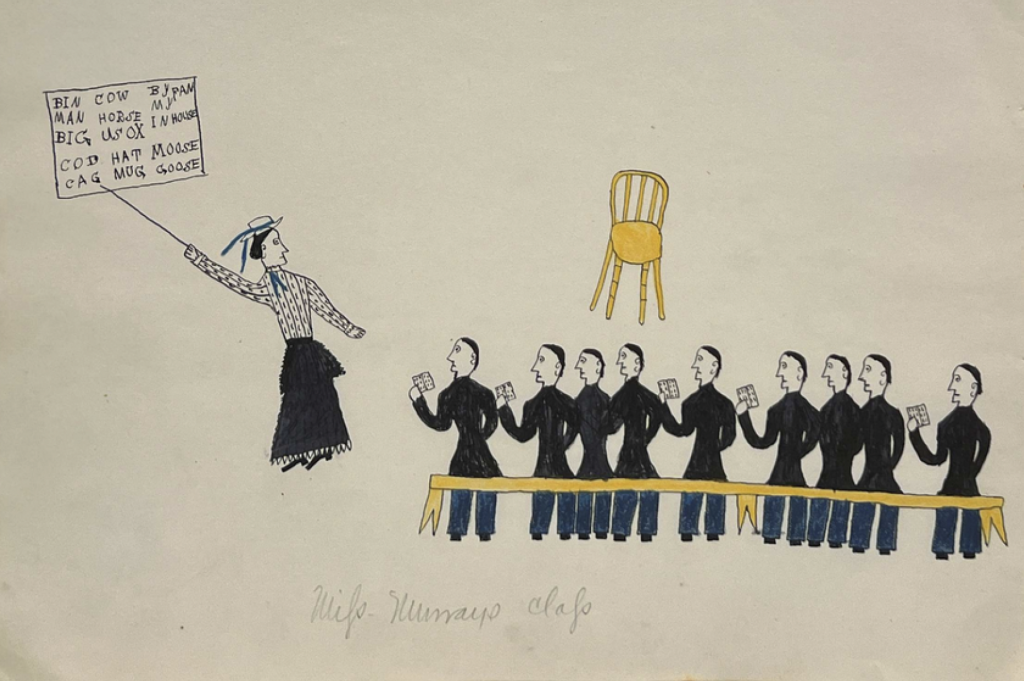 BIN COW BY PAN
MAN HORSE MY
BIG US OX IN HOUSE
COD HAT MOOSE
CAG MUG GOOSE
Miss- Murrays class